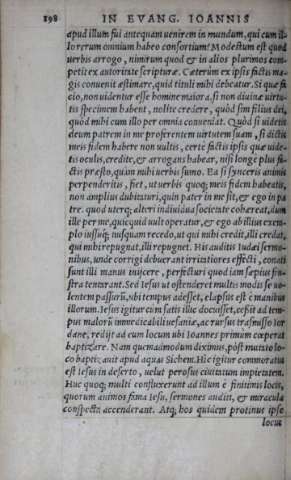 198 IN EVANG. IOANNIS
apud illum fui antequam uenirem in mundum, qui cum il-
lo rerum omnium habeo consortium? Modestum est quod
uerbis arrogo, nimirum quod & in alios plurimos com-
petit ex autoritate scripturæ. Cæterum ex ipsis factis ma-
gis conuenit æstimare, quid tituli mihi debeatur. Si quæ fa
cio, non uidentur esse homine maiora, si non diuinæ uirtu-
tis specimen habent, nolite credere, quòd sim filius dei,
quòd mihi cum illo per omnia conueniat. Quòd si uidetis
deum patrem in me proferentem uirtutem suam, si dictis
meis fidem habere non uultis, certè factis ipsis quæ uide-
tis oculis, credite, & arrogans habear, nisi longe plus fa-
ctis præsto, quàm mihi uerbis sumo. Ea si synceris animis
perpenderitis, fiet, ut uerbis quoq; meis fidem habeatis,
non amplius dubitaturi, quin pater in me sit, & ego in pa
tre. quod uterq; alteri indiuidua societate cohæreat, dum
ille per me, quicquid uult operatur, & ego ab illius exem-
plo iussuq; nusquam recedo, ut qui mihi credit, illi credat,
qui mihi repugnat, illi repugnet. His auditis Iudæi sermo-
nibus, unde corrigi debuerant irritatiores effecti, conati
sunt illi manus inijcere, perfecturi quod iam sæpius fru-
stra tentarant. Sed Iesus ut ostenderet multis modis se uo-
lentem passurũ, ubi tempus adesset, elapsus est è manibus
illorum. Iesus igitur cùm satis illic docuisset, cessit ad tem-
pus malorũ immedicabili uesaniæ, ac rursus trasmisso Ior
dane, redijt ad eum locum ubi Ioannes primum cœperat
baptizare. Nam quemadmodum diximus, pòst mutato lo-
co baptizauit apud aquas Sichem. Hic igitur commoratus
est Iesus in deserto, uelut perosus ciuitatum impietatem.
Huc quoq; multi confluxerunt ad illum è finitimis locis,
quorum animos fama Iesu, sermones auditi, & miracula
conspecta accenderant. Atq; hos quidem protinus ipse
locus